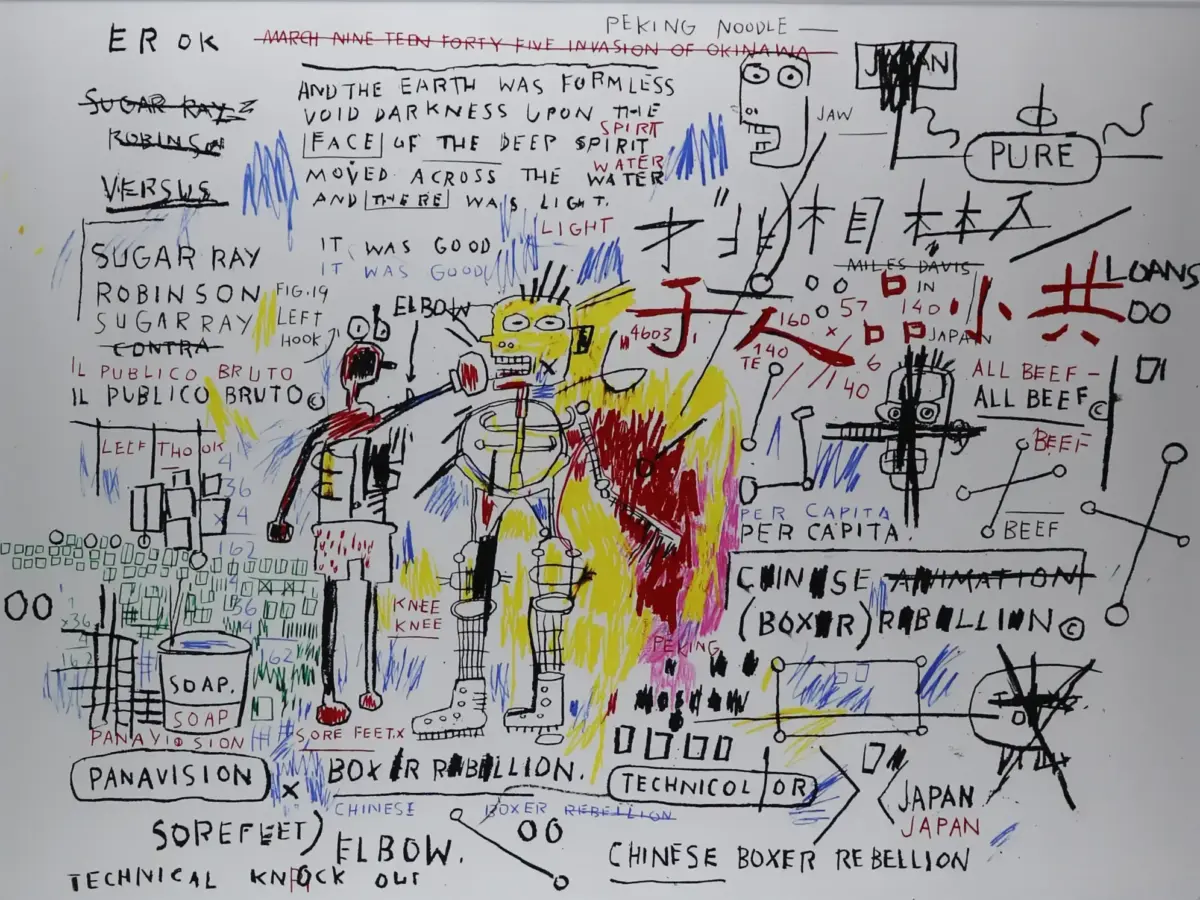 PEKING NOODLE
EROK
MARCH NINE TEEN FORTY FIVE INVASION OF OKINAWA
JAPAN
AND THE EARTH WAS FORMLESS
VOID DARKNESS UPON THE
SPIRT
FACE OF THE DEEP SPIRIT
WATER
MOVED ACROSS THE WATER
AND THERE WAS LIGHT.
LIGHT
SUGAR RAY
ROBINSON
VERSUS
JAW
PURE
IT WAS GOOD
IT WAS GOOD
SUGAR RAY
ROBINSON
SUGAR RAY
CONTRA
IL PUBLICO BRUTO
IL PUBLICO BRUTO©
FIG.19
LEFT
HOOK
ELBOW
MILES DAVIS
IN
JAPAN
LOANS
00
57
140
160
x
4603
140
TE
6
40
小 共
ALL BEEF -
ALL BEEF©
BEEF
BEEF
LEFT HOOK
4
36
x 4
162
4
36
4
162
x36
162
00
PER CAPITA
PER CAPITA.
CHINESE ANIMATION
(BOXER) REBELLION©
KNEE
KNEE
PEKING
SOAP.
SOAP
PANAVISION
PANAVISION
SORE FEET.X
BOXER REBELLION.
x
CHINESE BOXER REBELLION
TECHNICOLOR
JAPAN
JAPAN
SOREFEET)
ELBOW.
00
CHINESE BOXER REBELLION
TECHNICAL KNOCK OUT